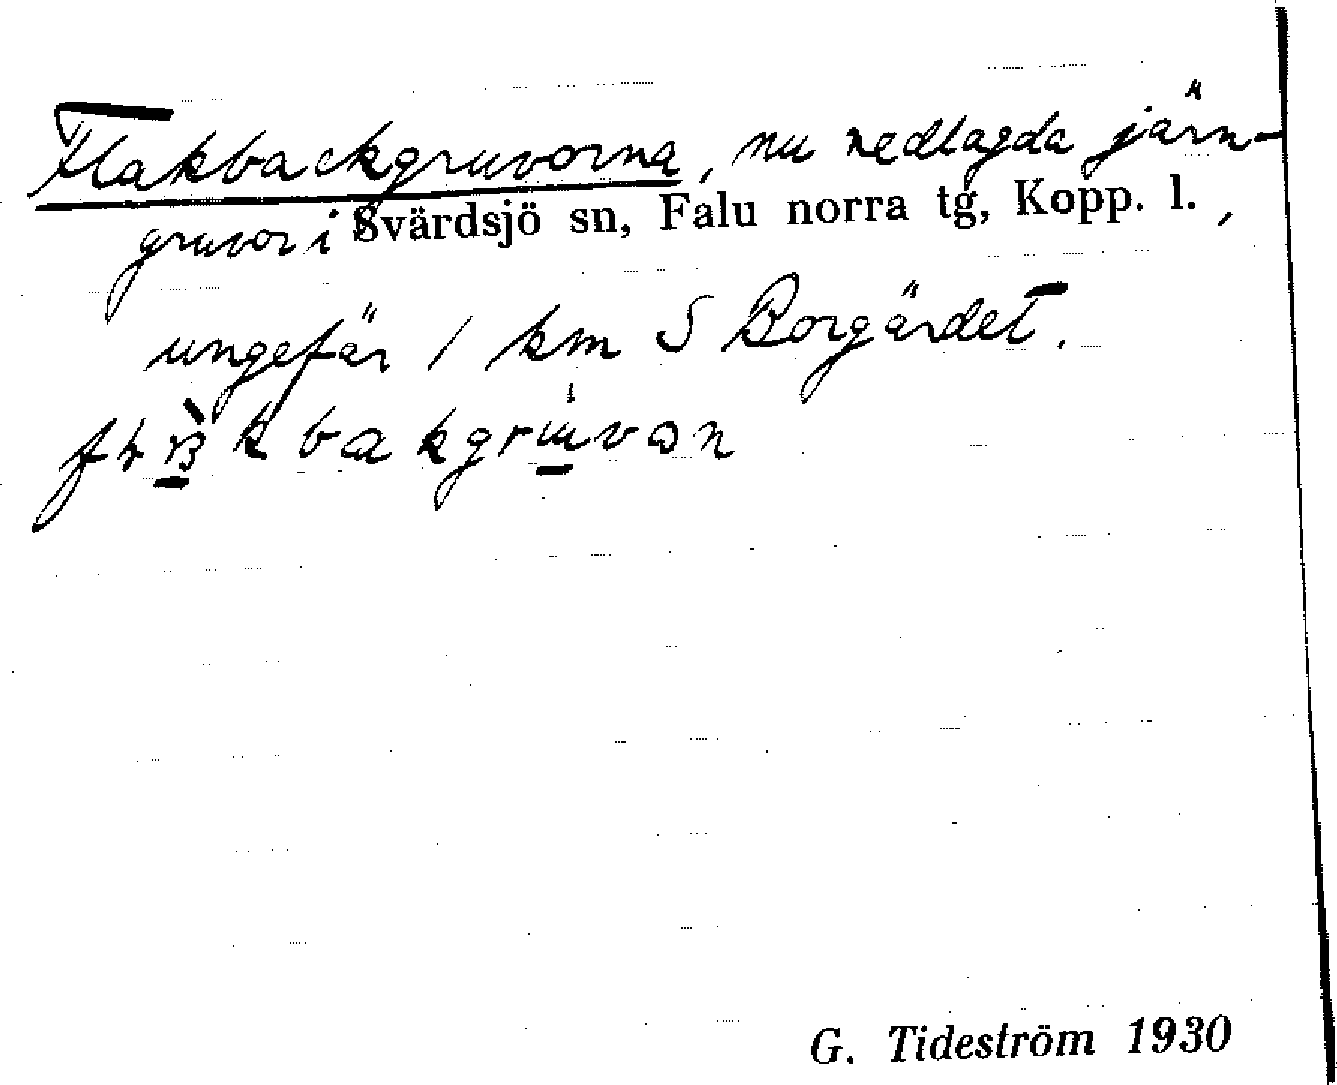 Flakbackgruvorna, nu nedlagda järn-
gruvor i Svärdsjö sn, Falu norra tg, Kopp. l.,
ungefär 1 km S Borgärdet.
G. Tideström 1930